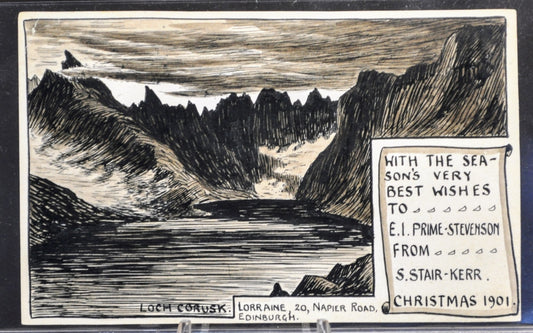 WITH THE SEA-
SON'S VERY
BEST WISHES
TO
E.I. PRIME-STEVENSON
FROM
S. STAIR-KERR.
CHRISTMAS 1901.
LOCH CORUSK.
LORRAINE, 20, NAPIER ROAD,
EDINBURGH.